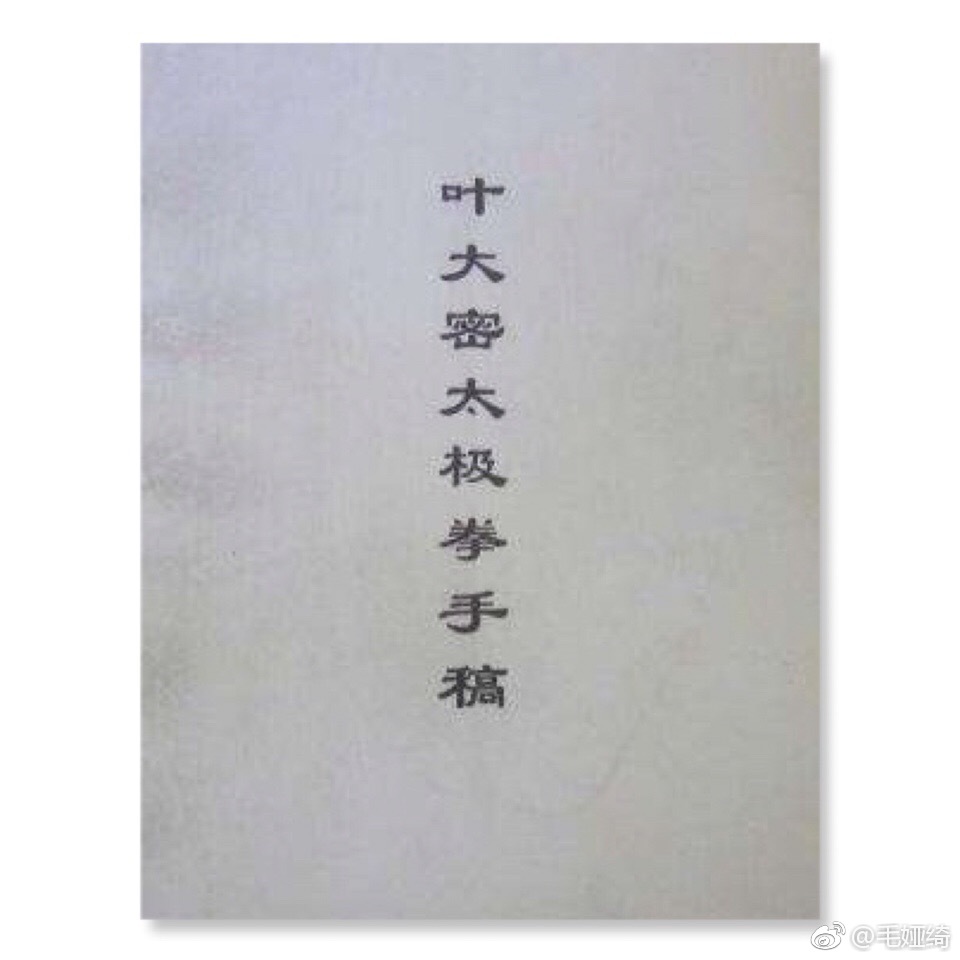 叶大密太极拳手稿
@毛娅绮